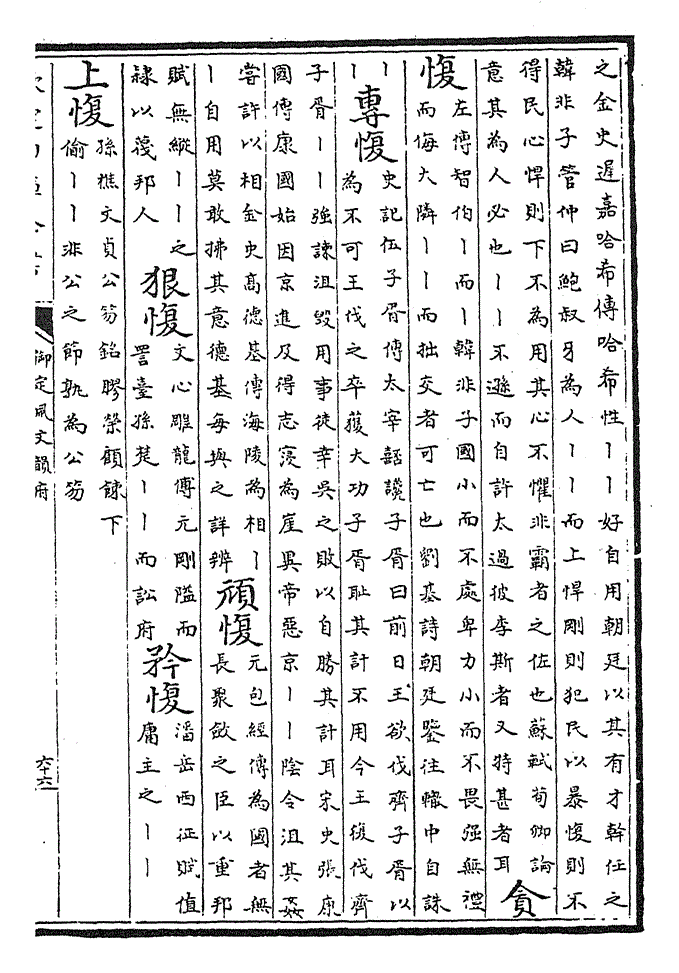 之金史遲嘉哈希傳哈希性〡〡好自用朝廷以其有才幹任之
韓非子管仲曰鮑叔牙為人〡〡而上悍剛則犯民以暴愎則不
得民心悍則下不為用其心不懼非霸者之佐也蘇軾荀卿論
意其為人必也〡〡不遜而自許太過彼李斯者又特甚者耳
貪
愎
左傳智伯〡而〡韓非子國小而不處卑力小而不畏强無禮
而侮大隣〡〡而拙交者可亡也劉基詩朝廷鑒往轍中自誅
〡〡
專愎
史記伍子胥傳太宰嚭讒子胥曰前日王欲伐齊子胥以
為不可王伐之卒獲大功子胥耻其計不用今王復伐齊
子胥〡〡強諫沮毀用事徒幸吳之敗以自勝其計耳宋史張康
國傳康國始因京進及得志寖為崖異帝惡京〡〡陰令沮其姦
嘗許以相金史高德基傳海陵為相〡
〡自用莫敢拂其意德基每與之詳辨
頑愎
元包經傳為國者無
長聚斂之臣以重邦
賦無縱〡〡之
隷以蔑邦人
狠愎
文心雕龍傅元剛隘而
詈臺孫楚〡〡而訟府
矜愎
潘岳西征賦值
庸主之〡〡
上愎
孫樵文貞公笏銘膠榮顧餗下
偷〡〡非公之節孰為公笏
御定佩文韻府
六十六